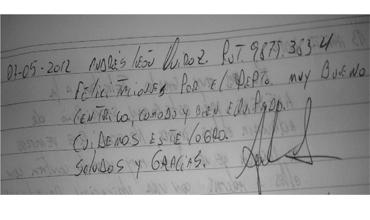 07-05-2012 ANDRÉS LEÓN QUIROZ. RUT. 9.879.383-4
FELICITACIONES POR EL DEPTO. MUY BUENO
CENTRICO, COMODO Y BIEN EQUIPADO.
CUIDEMOS ESTE LOGRO.
SALUDOS Y GRACIAS.